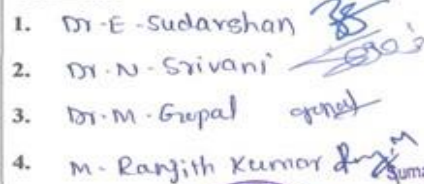 1. Dr. E. Sudarshan
2. Dr. N. Srivani
3. Dr. M. Gopal
4. M. Ranjith Kumar
Suma